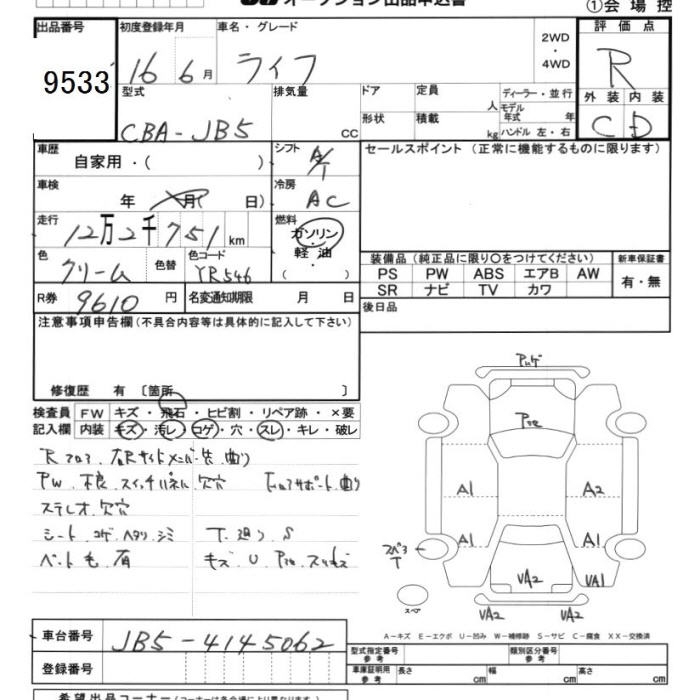 オークション出品申込書
①会場控
出品番号
9533
初度登録年月
16 6月
車名・グレード
ライフ
2WD
・
4WD
評価点
R
外装 内装
C D
型式
CBA-JB5
排気量
CC
ドア
形状
定員
人
積載
kg
ディーラー・並行
モデル
年式 年
ハンドル 左・右
車歴
自家用・( )
シフト
A/T
車検
年 月( 日)
冷房
AC
走行
12万2千751km
燃料
ガソリン
・
軽油
( )
色
クリーム
色替
色コード
YR546
R券 9610円
名変通知期限 月 日
セールスポイント(正常に機能するものに限ります)
装備品(純正品に限り○をつけてください)
PS PW ABS エアB AW
SR ナビ TV カワ
新車保証書
有・無
後日品
注意事項申告欄(不具合内容等は具体的に記入して下さい)
修復歴 有 〔箇所 〕
検査員
記入欄
FW キズ・飛石・ヒビ割・リペア跡・×要
内装 キズ・汚レ・コゲ・穴・スレ・キレ・破レ
PW 不良 スイッチパネル欠穴
ステレオ欠穴
シート コゲ ヘタリ シミ
ペット毛 有
キズ U
A1 A2
A1 A1
VA2 VA1
VA2 VA2
スペア
A-キズ E-エクボ U-凹み W-補修跡 S-サビ C-腐食 XX-交換済
車台番号 JB5-4145062
登録番号
型式指定番号
参考
類別区分番号
参考
車庫証明用
参考
長さ cm 幅 cm 高さ cm
希望出品コーナー(コーナーは各会場により異なります)